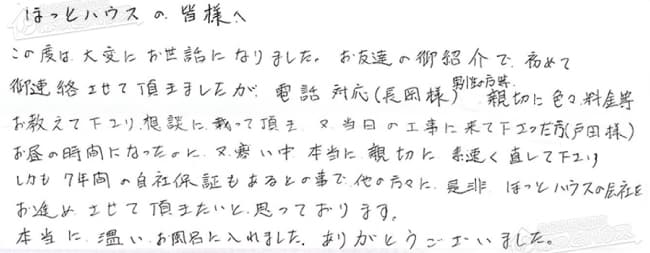 ほっとハウスの皆様へ
この度は大変にお世話になりました。お友達の御紹介で初めて
御連絡させて頂きましたが、電話対応(長岡様)親切に色々料金等
お教えて下さり、相談に載って頂き、又当日の工事に来て下さった方(戸田様)
お昼の時間になったのに、又寒い中本当に親切に素速く直して下さり
しかも7年間の自社保証もあるとの事で、他の方々に、是非ほっとハウスの会社を
お進めさせて頂きたいと思っております。
本当に温いお風呂に入れました。ありがとうございました。